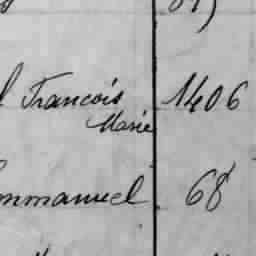 François 1406
Marie
mmanuel 68